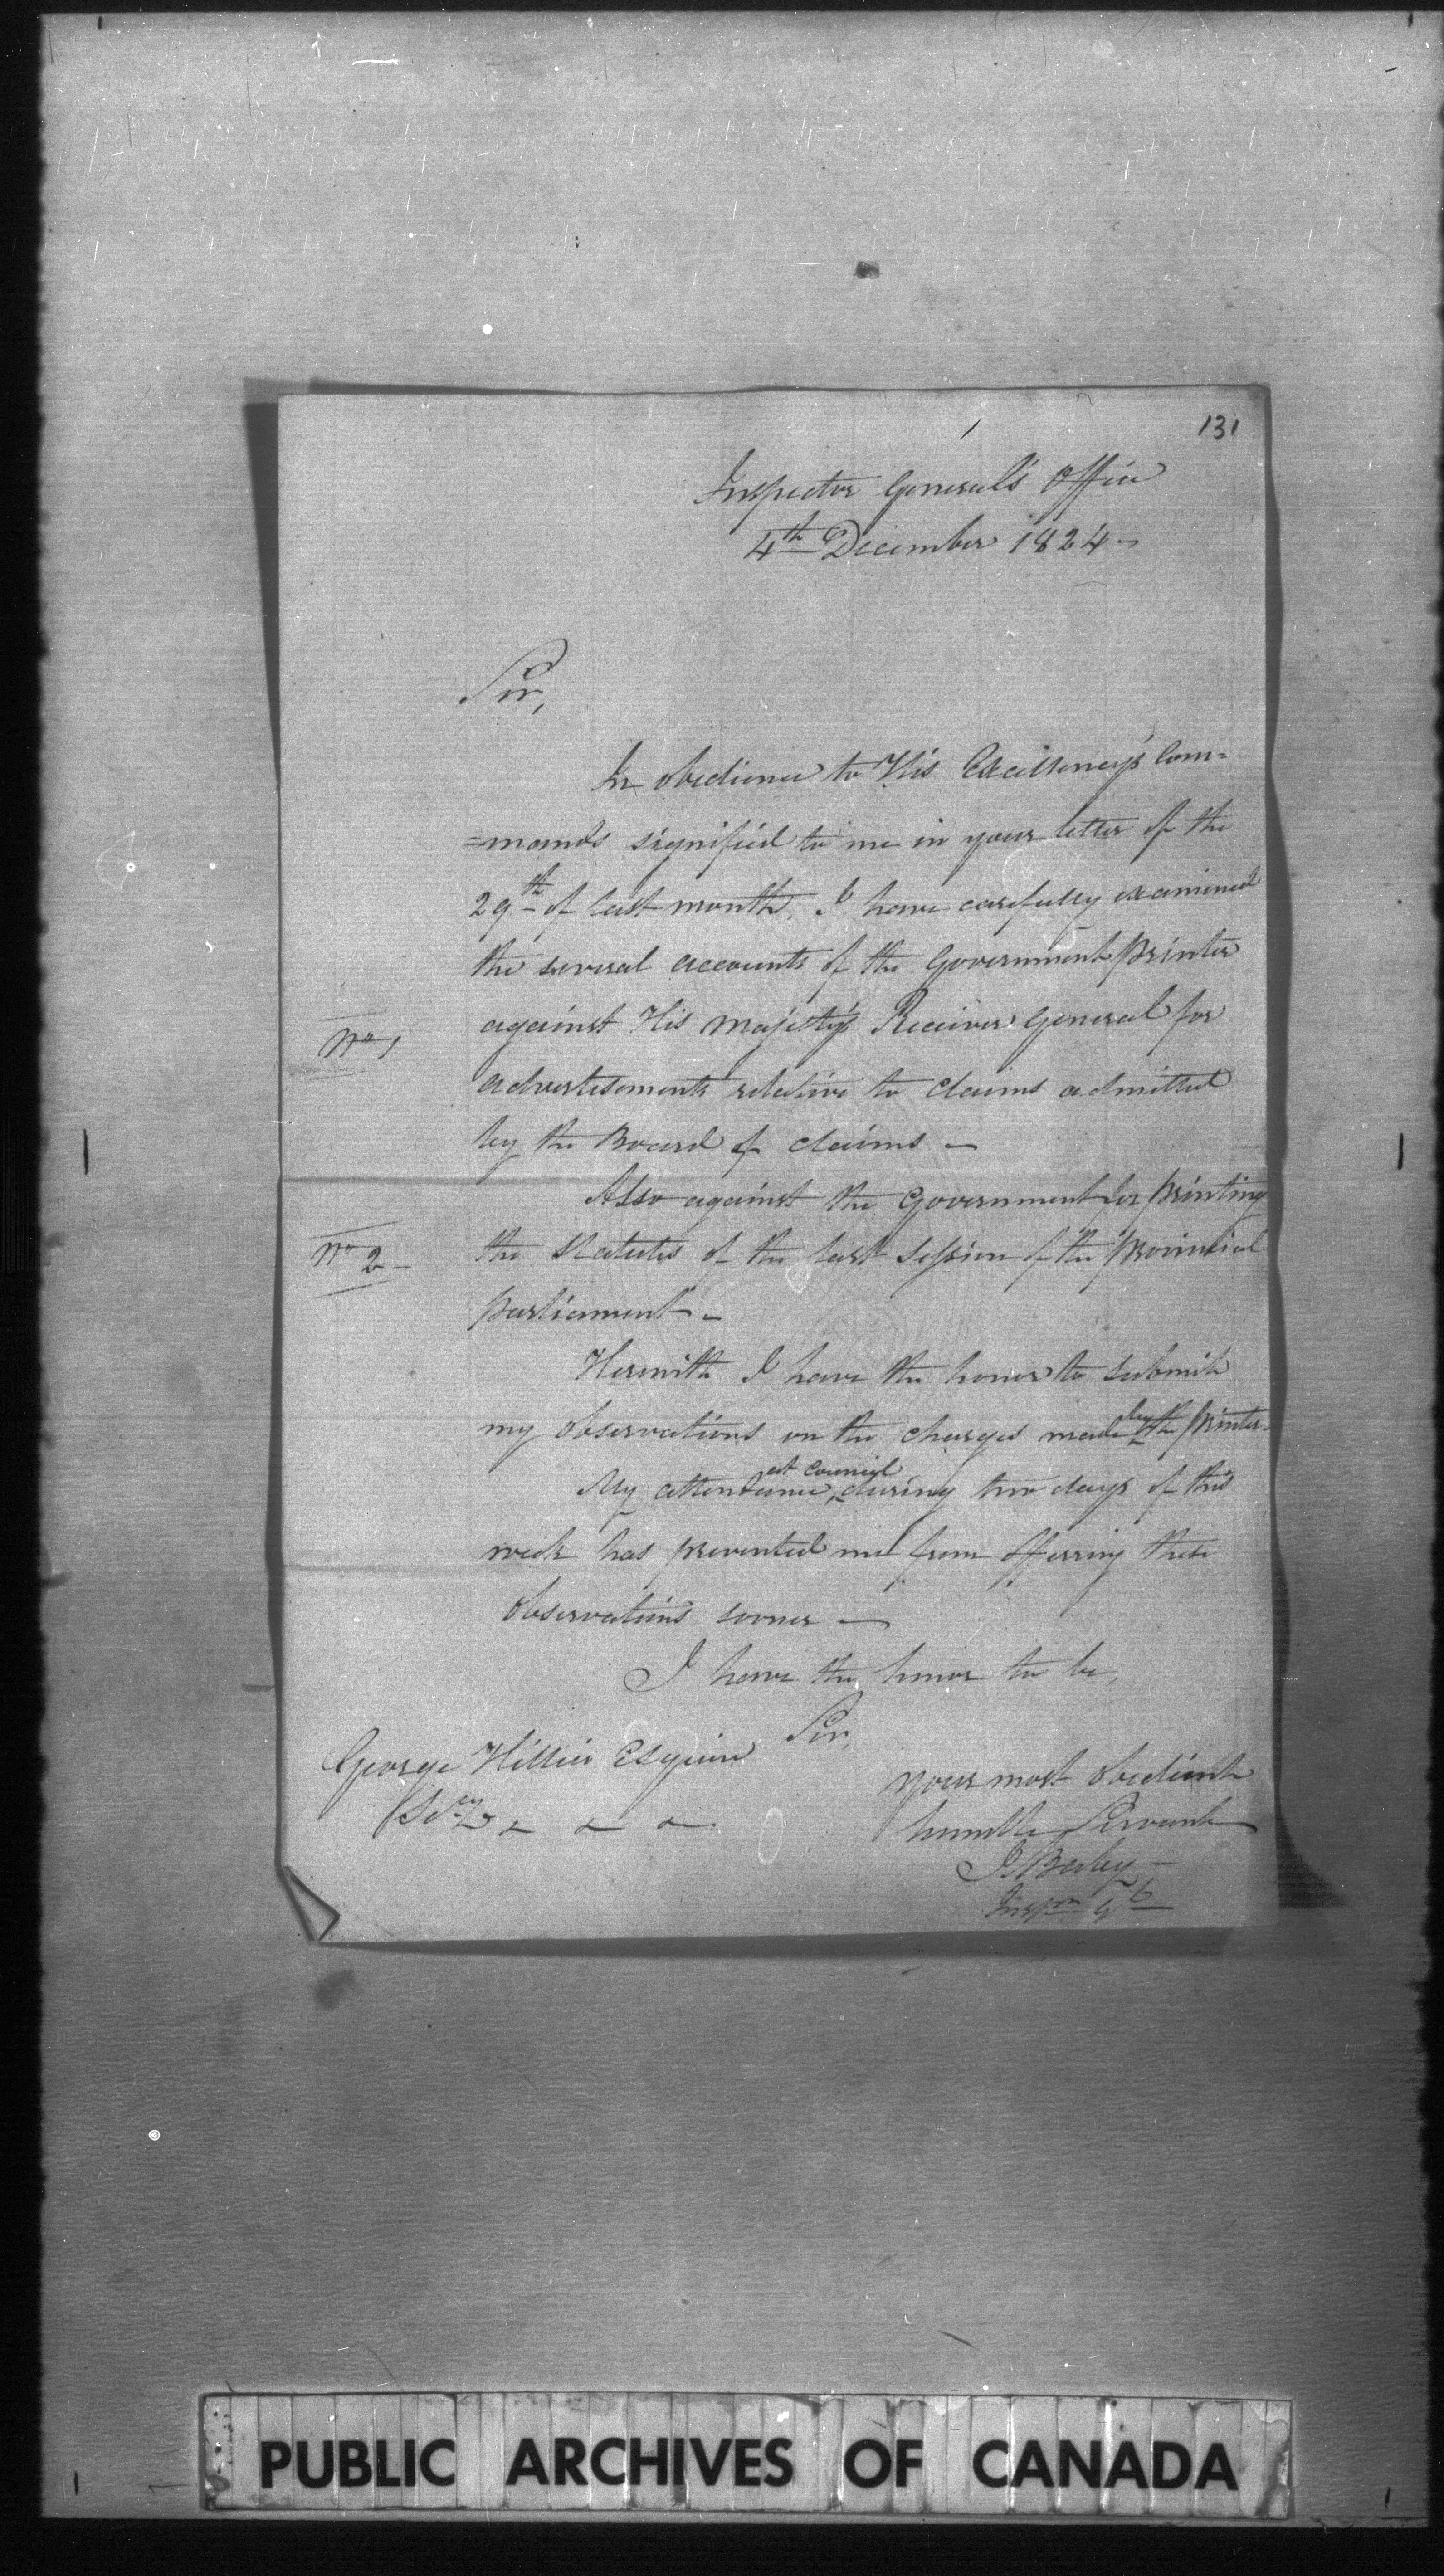 131
Inspector General's Office
4th December 1824 -
Sir,
In obedience to His Excellency's Com=
=mands signified to me in your letter of the
29th of last month, I have carefully examined
the several accounts of the Government printer
No 1 against His Majesty's Receiver General for
advertisements relative to claims admitted
by the Board of claims -
Also against the Government for printing
No 2 - the Statutes of the last Session of the provincial
parliament -
Herewith I have the honor to submit
my observations on the charges made by the printer -
My attendance at Council during two days of this
week has prevented me from offering these
observations sooner -
I have the honor to be,
Sir,
George Hillier Esquire
your most obedient
Secy - - -
humble Servant
J. Baby -
Insp. Gl
PUBLIC ARCHIVES OF CANADA